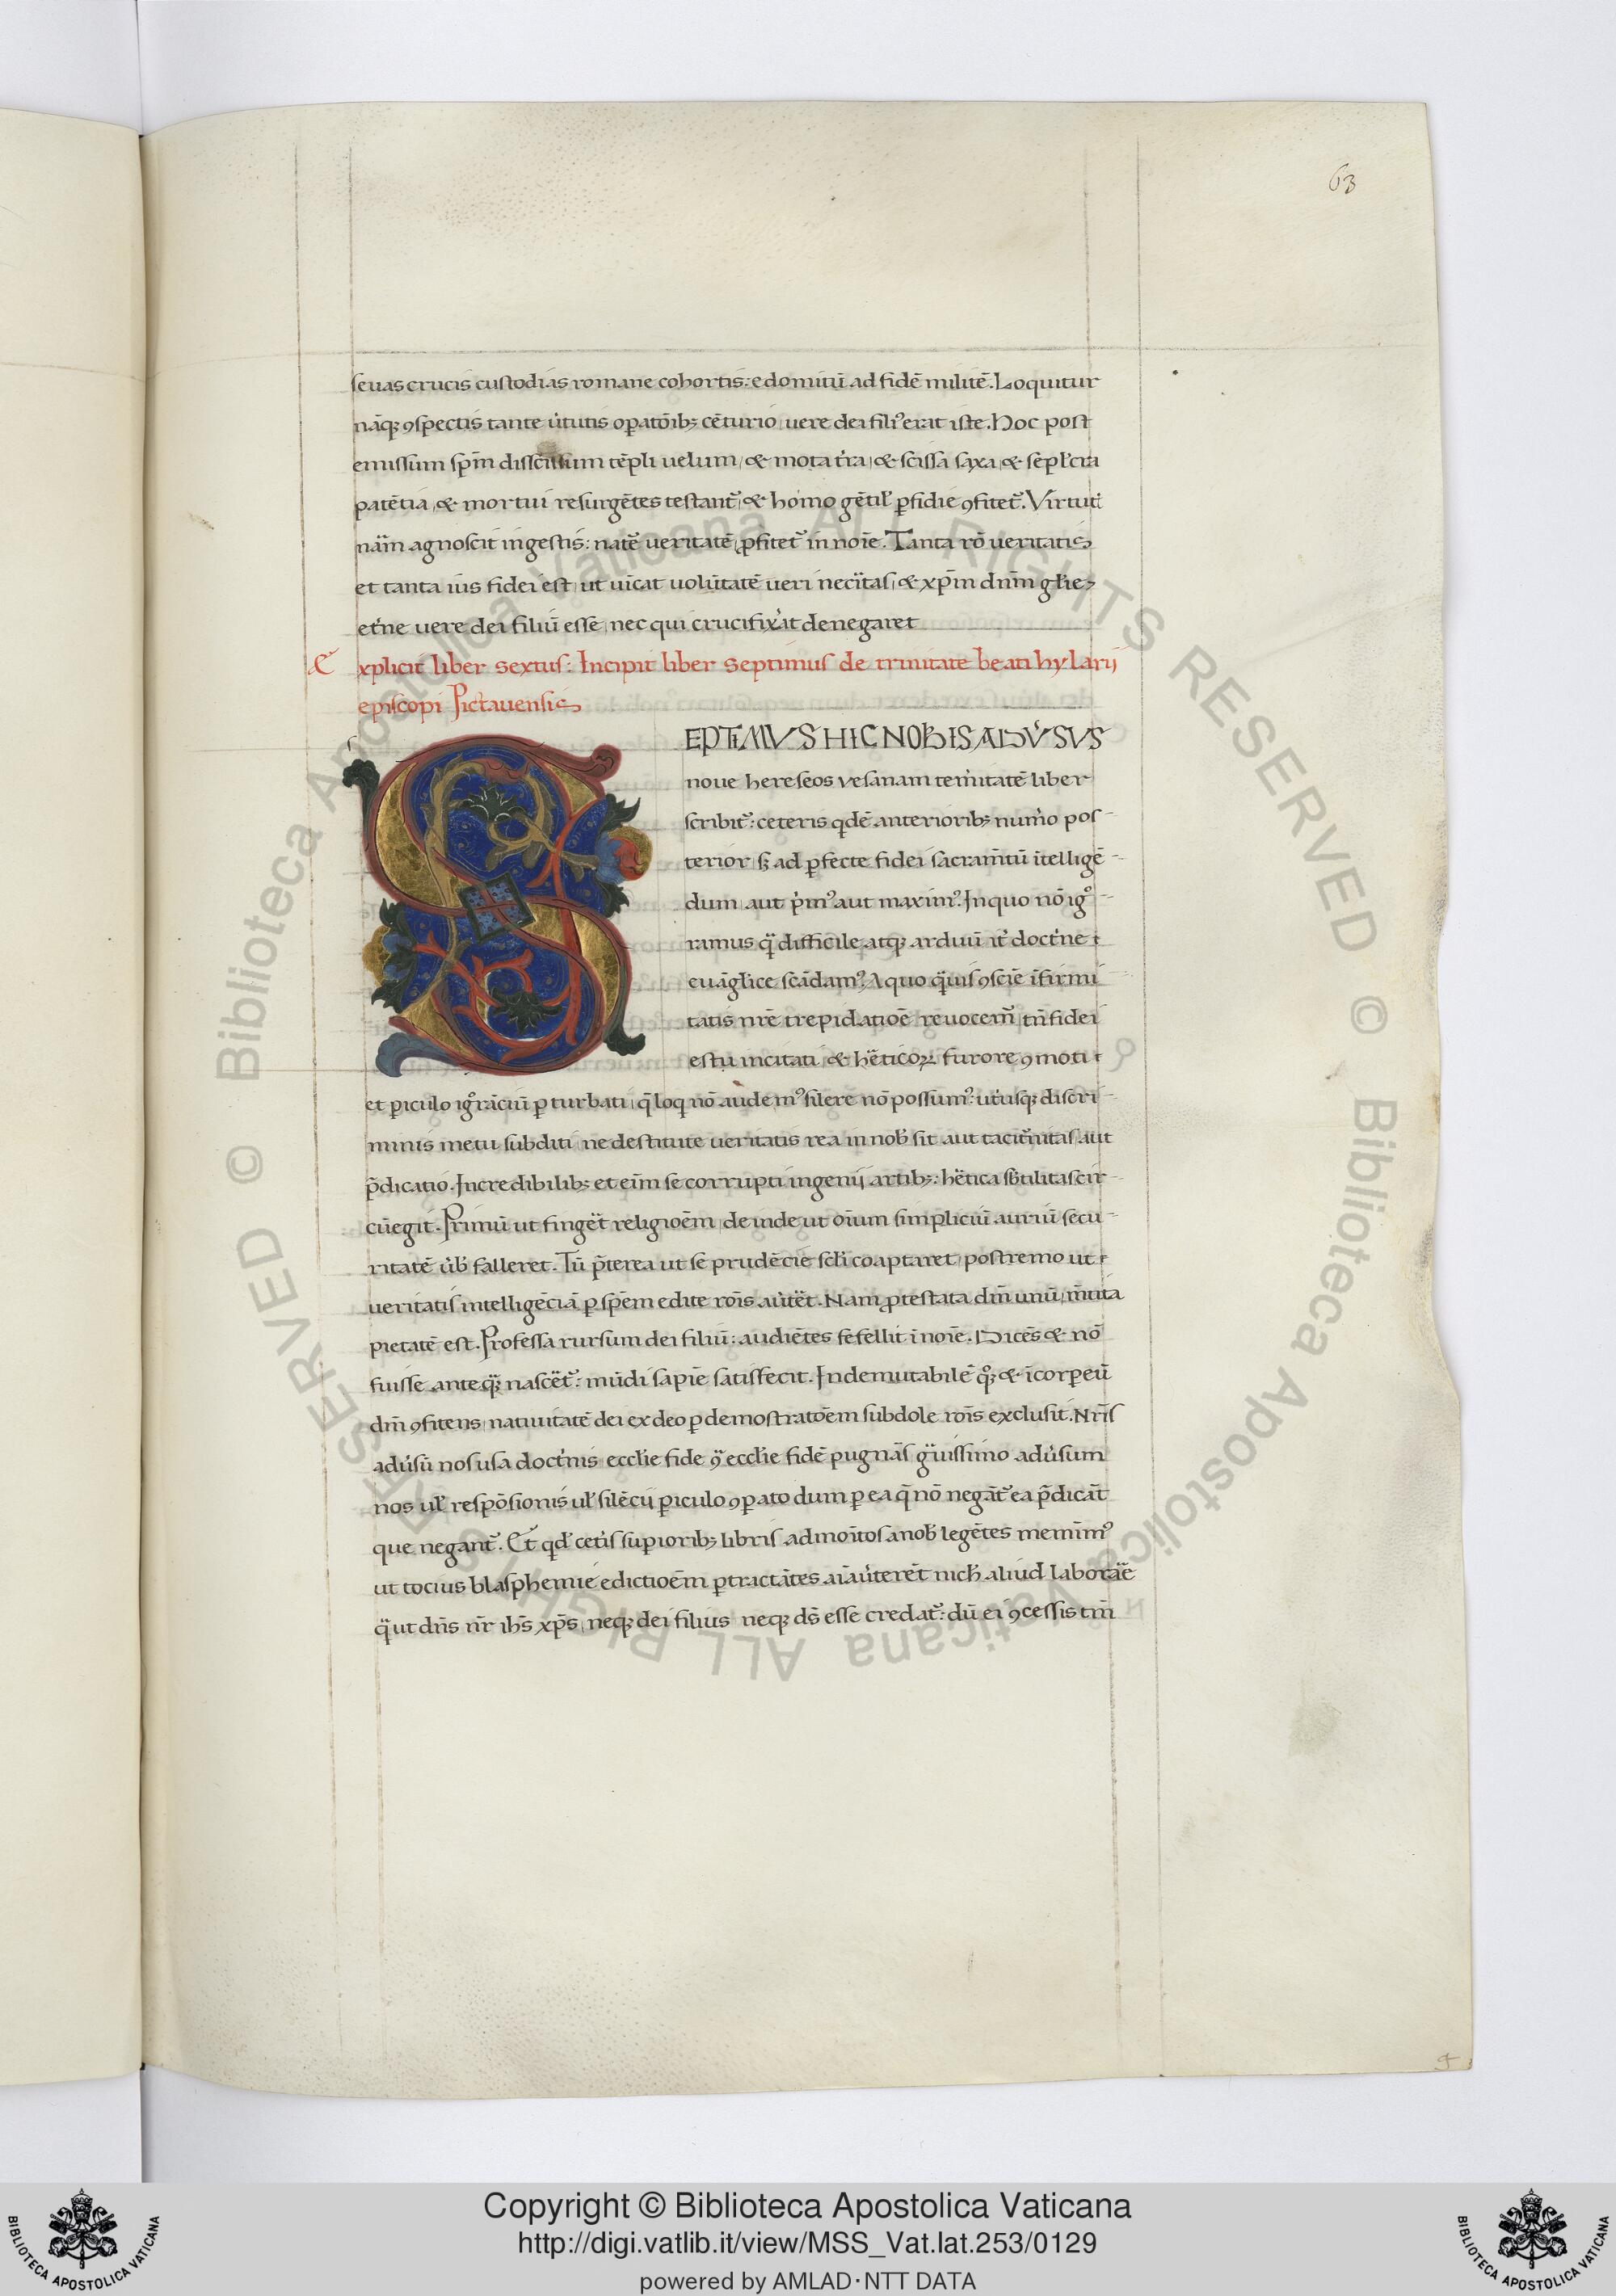 63
seuas crucis custodias romane cohortis: edomitū ad fidē militē. Loquitur
nāq; ꝯspectis tante u̓tutis oꝑatōib; cēturio uere dei fili᷒ erat iste. Hoc post
emissum sp̄m disscissum tēpli uelum, & mota t̓ra, & scissa saxa, & sepl̓cra
patētia, & mortui resurgētes testant᷒, & homo gētil̓ ꝑfidie ꝯfitet᷒. Virtuti
nām agnoscit in gestis: natē ueritatē ꝓfitet᷒ in noīe. Tanta rō ueritatis
et tanta uis fidei est, ut uīcat uolūtatē ueri necītas, & xp̄m dn̄m gl̓ie
et̓ne uere dei filiū esse, nec qui crucifix̓at denegaret
Explicit liber sextus: Incipit liber septimus de trinitate beati hylarij
episcopi Pictauensis
SEPTIMVS HIC NOBIS ADV̓SVS
noue hereseos vesanam tem̓itatē liber
scribit᷒: ceteris qdē anteriorib; num̓o pos-
terior, s; ad ꝑfecte fidei sacramētū ītelligē-
dum aut p̓m᷒ aut maxim᷒. In quo nō igͦ-
ramus q̄ difficile atq; arduū it̓ doct̓ne
euāgl̓ice scādam᷒. A quo q̄uis ꝯsciē īfirmi
tatis nr̄e trepidatiōē reuocem᷒ tn̄ fidei
estu incitati & hēticoꝝ furore ꝯmoti
et ꝑiculo igͦrāciū ꝑturbati, q̄ loq̓ nō audem᷒ silere nō possum᷒: ut̓usq; discri-
minis metu subditi, ne destitute ueritatis rea in nob̓ sit aut tacit̓nitas aut
p̄dicatio. Incredibilib; et eīm se corrupti ingenij artib;: hētica sb̓tilitas cir-
cūegit. Primū ut fingēt religiōēm, deinde ut oīum simpliciū auriū secu-
ritatē ūb̓ falleret. Tū p̄terea ut se prudēcie scl̓i coaptaret, postremo ut
ueritatis intelligēciā ꝑ spēm edite rōis au̓tēt. Nam ꝓtestata dm̄ unū, m̄tita
pietatē est. Professa rursum dei filiū: audiētes fefellit ī noīe. Dicēs & nō
fuisse anteq̄; nascēt᷒: mūdi sapiē satisfecit. Indemutabilē qͦ; & īcorꝑeū
dm̄ ꝯfitens, natiuitatē dei ex deo ꝑ demostratōēm subdole rōis exclusit. Nr̄is
adu̓sū nos usa doct̓nis, eccl̓ie fide ꝯ̄ eccl̓ie fidē pugnās gūissimo adu̓sum
nos ul̓ respōsionis ul̓ silēcij ꝑiculo ꝯꝑato dum ꝑ ea q̄ nō negāt᷒ ea p̄dicāt᷒
que negant᷒. Et qd̓ cet̓is suꝑiorib; libris admoītos a nob̓ legētes memīm᷒
ut tocius blasphemie edictiōēm ꝑtractātes aīau̓terēt nich̓ aliud laborāē
q̄ ut dn̄s nr̄ ih̄s xp̄s, neq; dei filius neq; ds̄ esse credat᷒: dū ei ꝯcessis tm̄
Copyright © Biblioteca Apostolica Vaticana
http://digi.vatlib.it/view/MSS_Vat.lat.253/0129
powered by AMLAD·NTT DATA